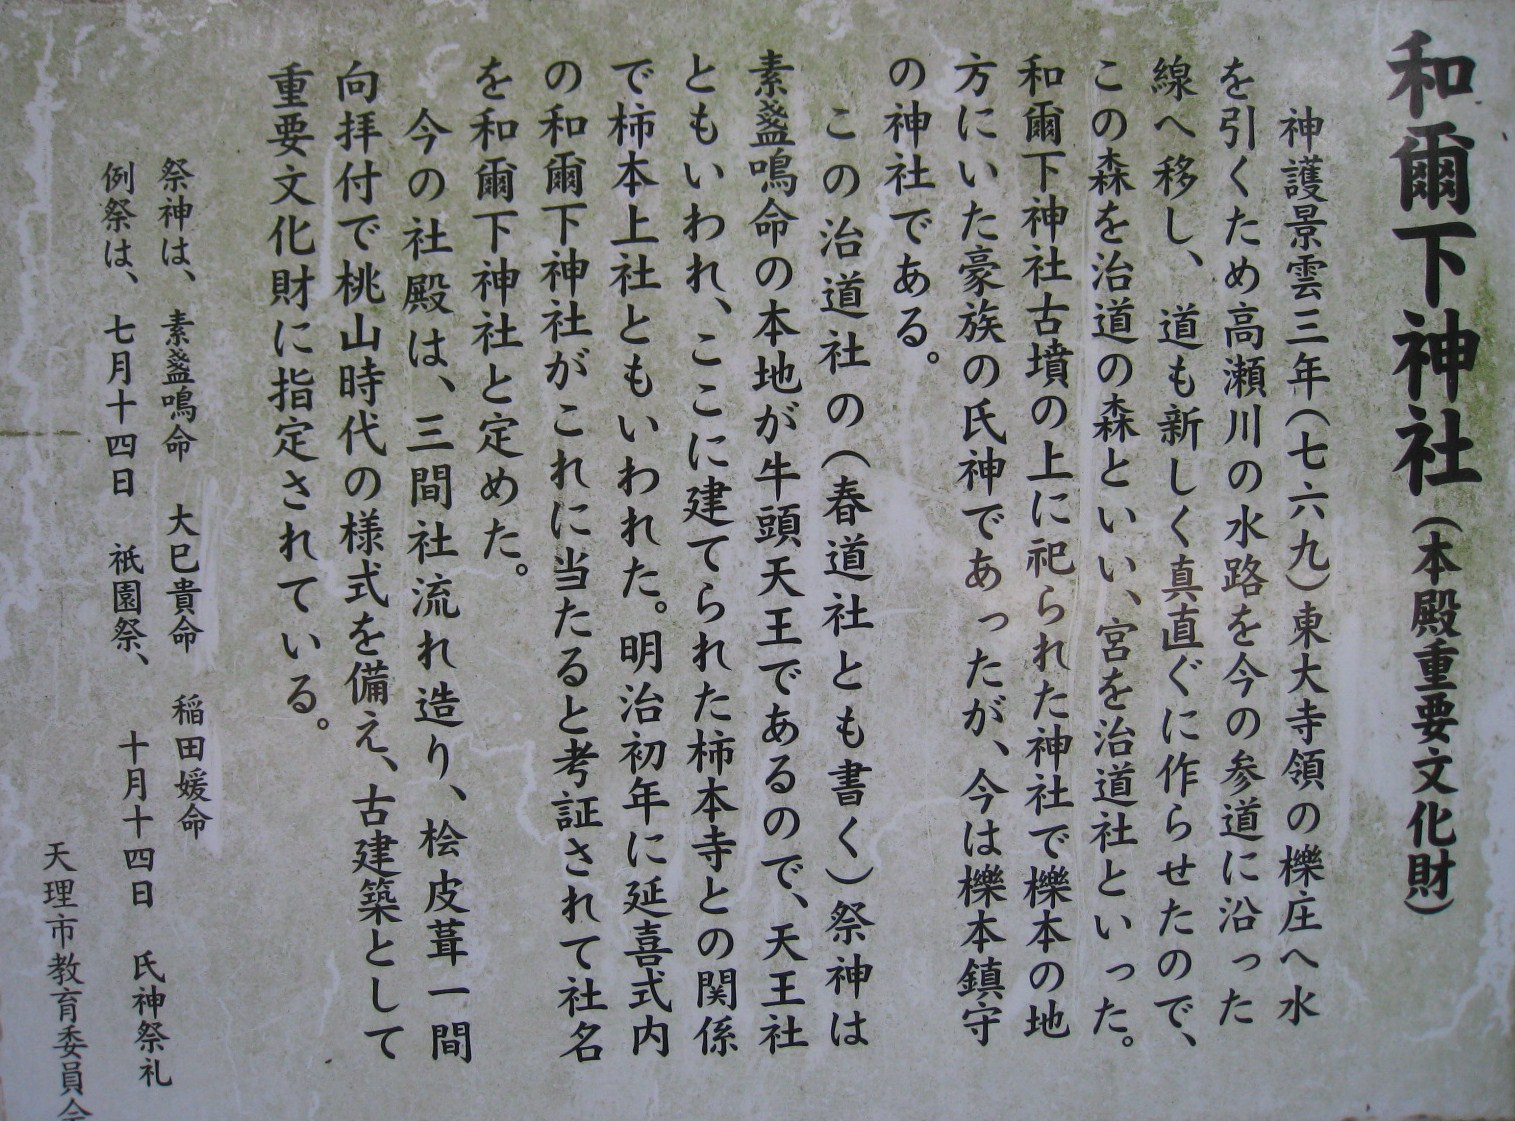 和爾下神社（本殿重要文化財）
神護景雲三年（七六九）東大寺領の櫟庄へ水
を引くため高瀬川の水路を今の参道に沿った
線へ移し、道も新しく真直ぐに作らせたので、
この森を治道の森といい、宮を治道社といった。
和爾下神社古墳の上に祀られた神社で櫟本の地
方にいた豪族の氏神であったが、今は櫟本鎮守
の神社である。
この治道社の（春道社とも書く）祭神は
素盞鳴命の本地が牛頭天王であるので、天王社
ともいわれ、ここに建てられた柿本寺との関係
で柿本上社ともいわれた。明治初年に延喜式内
の和爾下神社がこれに当たると考証されて社名
を和爾下神社と定めた。
今の社殿は、三間社流れ造り、桧皮葺一間
向拝付で桃山時代の様式を備え、古建築として
重要文化財に指定されている。
祭神は、素盞鳴命 大巳貴命 稲田媛命
例祭は、七月十四日 祇園祭、 十月十四日 氏神祭礼
天理市教育委員会